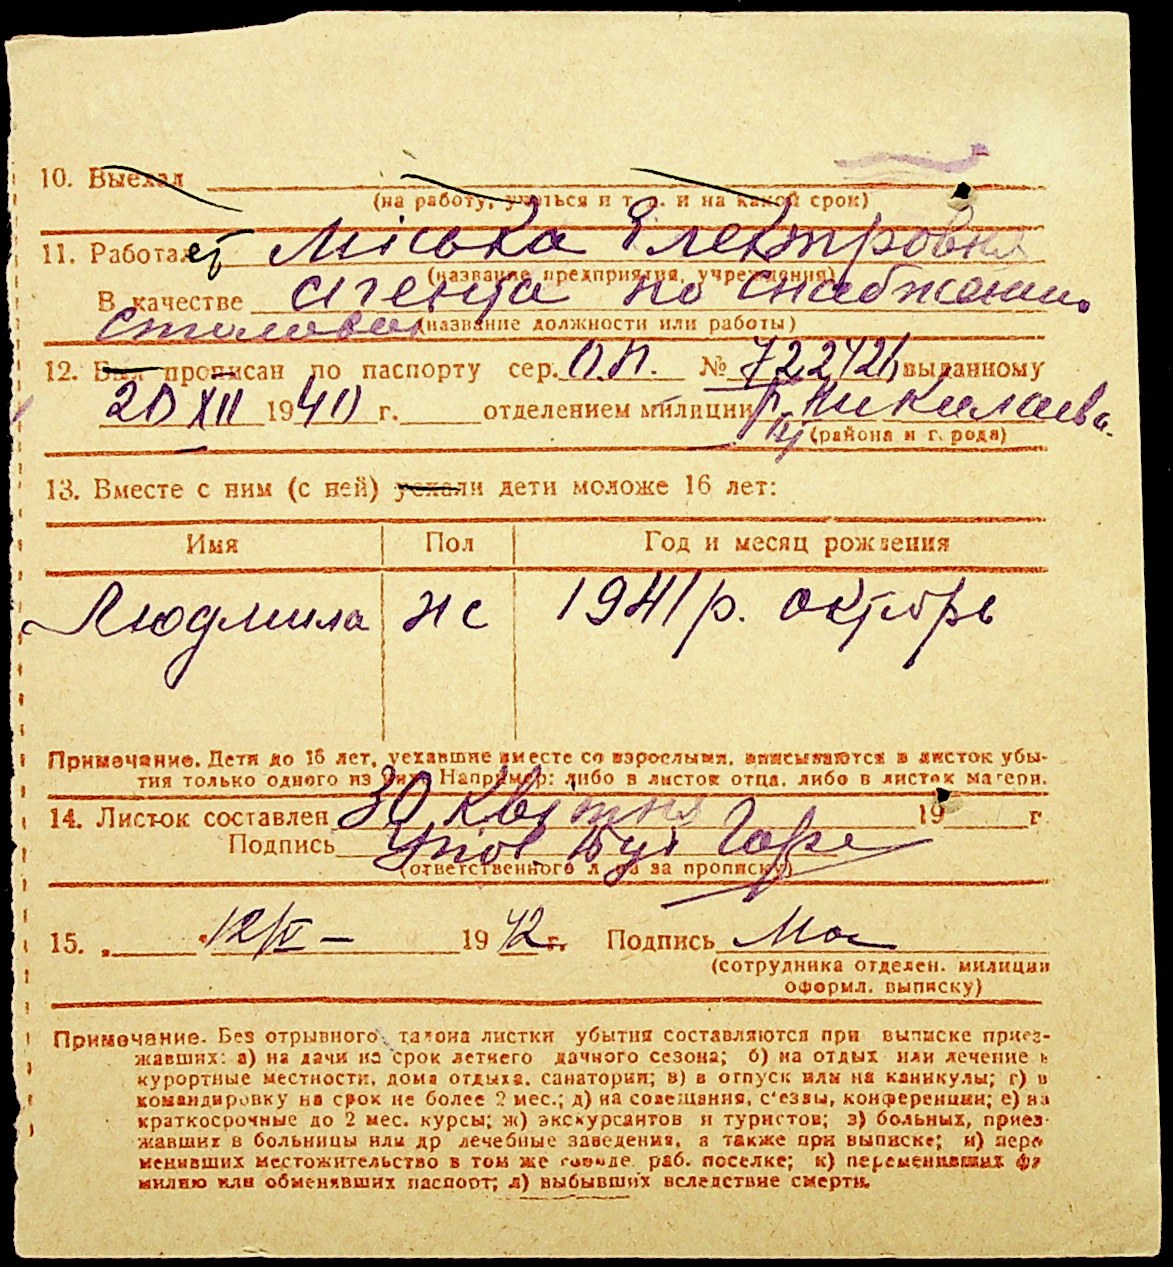 10. Выехал
(на работу, учиться и т. д. и на какой срок)
11. Работает Міська Електровня
(название предприятия, учреждения)
В качестве агента по снабжению
столовой (название должности или работы)
12. Был прописан по паспорту сер. О.П. № 722421, выданному
20 XII 1940 г. отделением милиции г. Николаева
(района и города)
13. Вместе с ним (с ней) уехали дети моложе 16 лет:
Имя Пол Год и месяц рождения
Людмила ж 1941 р. октябрь
Примечание. Дети до 16 лет, уехавшие вместе со взрослыми, вписываются в листок убы-
тия только одного из них. Например: либо в листок отца, либо в листок матери.
14. Листок составлен 30 квітня 19 г
Подпись
(ответственного лица за прописку)
15. „ “ 12/V – 1942 г. Подпись
(сотрудника отделен. милиции
оформл. выписку)
Примечание. Без отрывного талона листки убытия составляются при выписке приез-
жавших: а) на дачи на срок летнего дачного сезона; б) на отдых или лечение в
курортные местности, дома отдыха, санатории; в) в отпуск или на каникулы; г) в
командировку на срок не более 2 мес.; д) на совещания, с'езды, конференции; е) на
краткосрочные до 2 мес. курсы; ж) экскурсантов и туристов; з) больных, приез-
жавших в больницы или др лечебные заведения, а также при выписке; и) пере
менивших местожительство в том же городе, раб. поселке; к) переменивших фа
милию или обменявших паспорт; л) выбывших вследствие смерти.